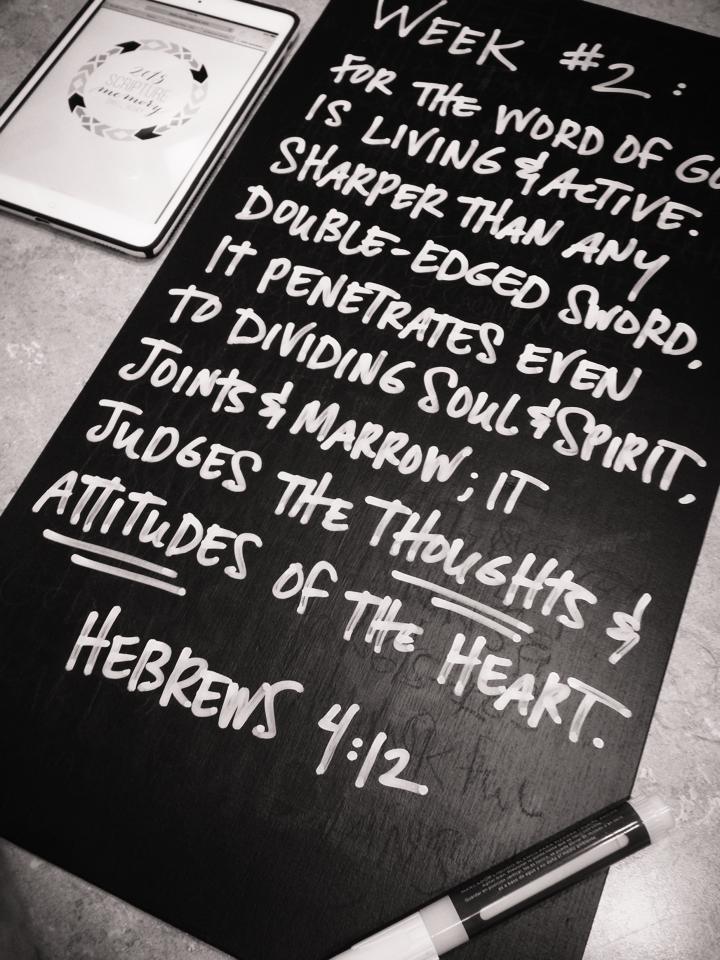 2015
SCRIPTURE
memory
WEEK #2:
FOR THE WORD OF GO
IS LIVING & ACTIVE.
SHARPER THAN ANY
DOUBLE-EDGED SWORD,
IT PENETRATES EVEN
TO DIVIDING SOUL & SPIRIT,
JOINTS & MARROW; IT
JUDGES THE THOUGHTS &
ATTITUDES OF THE HEART.
HEBREWS 4:12